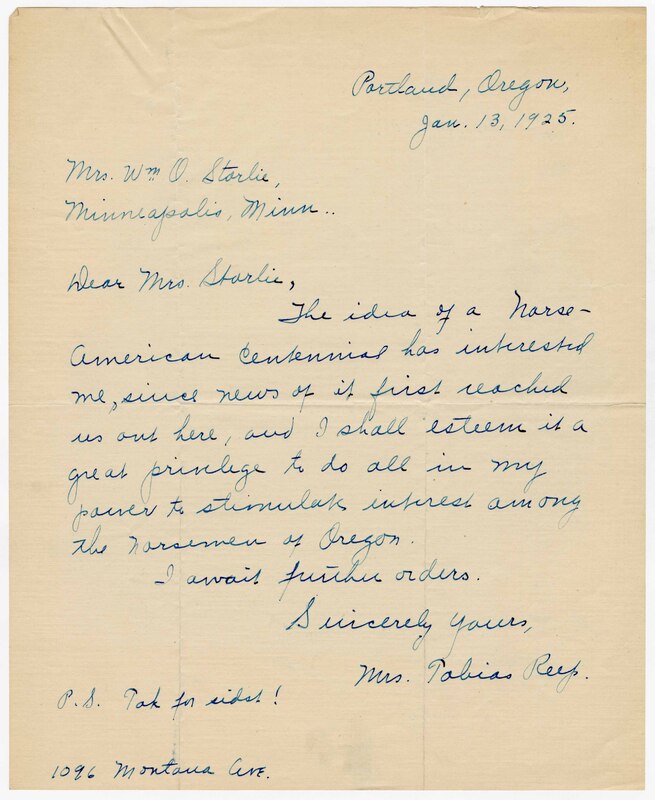 Portland, Oregon,
Jan. 13, 1925.
Mrs. Wm O. Storlie,
Minneapolis, Minn..
Dear Mrs. Storlie,
The idea of a Norse-
American Centennial has interested
me, since news of it first reached
us out here, and I shall esteem it a
great privilege to do all in my
power to stimulate interest among
the Norsemen of Oregon.
I await further orders.
Sincerely yours,
Mrs. Tobias Reep.
P.S. Tak for sidst!
1096 Montana Ave.